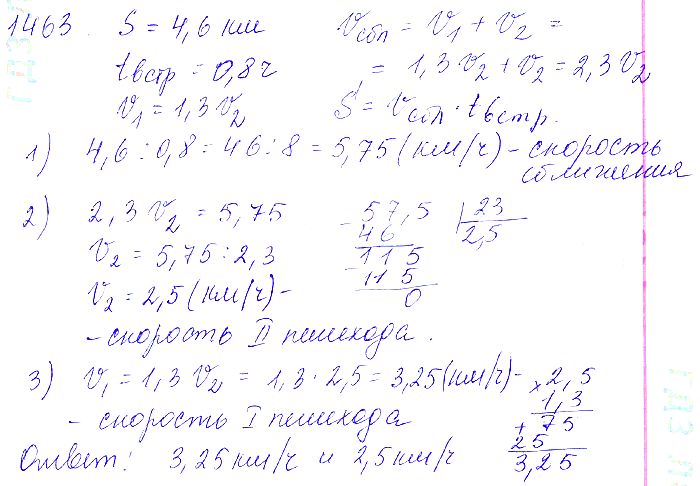 1463. S = 4,6 км
tвстр = 0,8 ч
v₁ = 1,3 v₂
vсбл = v₁ + v₂ =
= 1,3 v₂ + v₂ = 2,3 v₂
S = vсбл · tвстр.
1) 4,6 : 0,8 = 46 : 8 = 5,75 (км/ч) - скорость
сближения
2) 2,3 v₂ = 5,75
v₂ = 5,75 : 2,3
v₂ = 2,5 (км/ч) -
- скорость II пешехода.
- 57,5 | 23
46 2,5
- 11 5
11 5
0
3) v₁ = 1,3 v₂ = 1,3 · 2,5 = 3,25 (км/ч) -
- скорость I пешехода
× 2,5
1,3
+ 75
25
3,25
Ответ: 3,25 км/ч и 2,5 км/ч